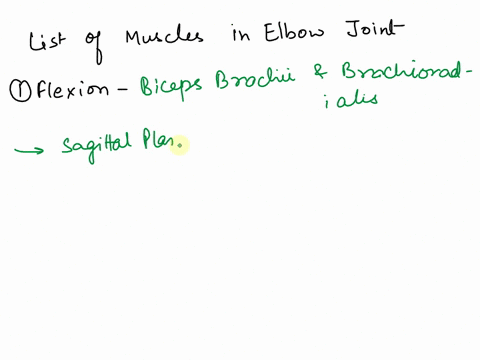 List of Muscles in Elbow Joint
① Flexion - Biceps Brachii & Brachiorad-
ialis
→ Sagittal Plan